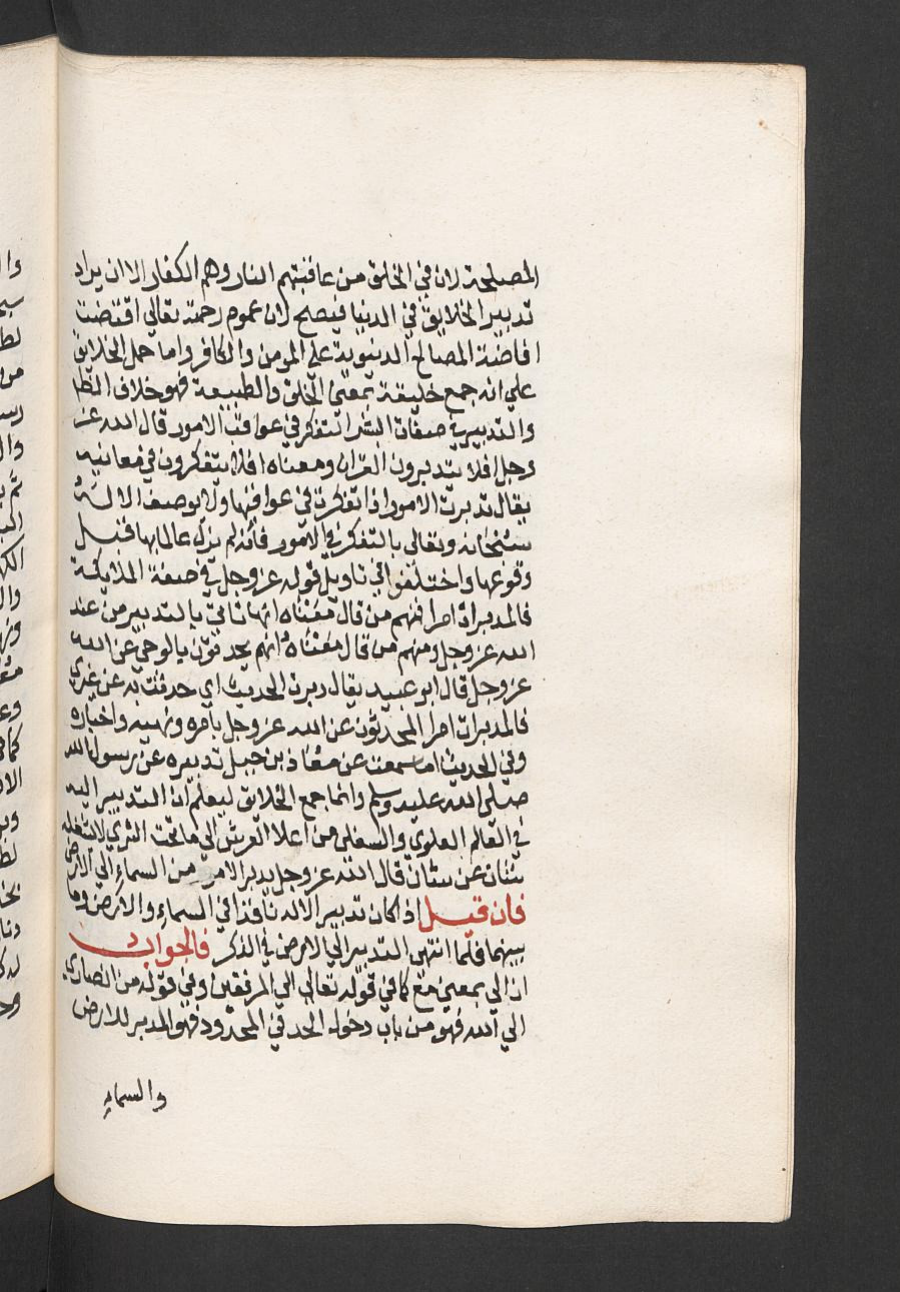 المصلحة لان في الخلق من عاقبتهم النار وهم الكفار الا ان يراد
تدبير الخلايق في الدنيا فيصح لان عموم رحمة تعالي اقتضت
افاضة المصالح الدنيوية علي المومن والكافر واما حمل الخلايق
علي انه جمع خليقة بمعني الخلق والطبيعة فهو خلاف الظا
والتدبير في صفات البشر التفكر في عواقب الامور قال الله عز
وجل افلا يتدبرون القران ومعناه افلا يتفكرون في معانيه
يقال تدبرت الامور اذا تفكرت في عواقبها ولا يوصف الاله
سبحانه وتعالي بالتفكر في الامور فانه لم يزل عالما بها قبل
وقوعها واختلفوا في تاويل قوله عز وجل في صفة الملايكة
فالمدبرات امرا فمنهم من قال معناه انها تاتي بالتدبير من عند
الله عز وجل ومنهم من قال معناه انهم يحدثون بالوحي عن الله
عز وجل قال ابو عبيد يقال دبرت الحديث اي حدثت به عن غيري
فالمدبرات امرا المحدثون عن الله عز وجل بامره ونهيه واخباره
وفي الحديث اما سمعت عن معاذ بن جبل تدبيره عن رسول الله
صلي الله عليه وسلم وانما جمع الخلايق ليعلم ان التدبير اليه
في العالم العلوي والسفلي من اعلا العرش الي ما تحت الثري لا يشغله
شان عن شان قال الله عز وجل يدبر الامر من السماء الي الارض
فان قيل اذا كان تدبير الاله نافذا في السماء والارض وما
بينهما فلما انتهي التدبير الي الارض في الذكر فالجواب
ان الي بمعني مع كما في قوله تعالي الي المرفقين وفي قوله من انصاري
الي الله فهو من باب دخول الحد في المحدود فهو المدبر للارض
والسماء